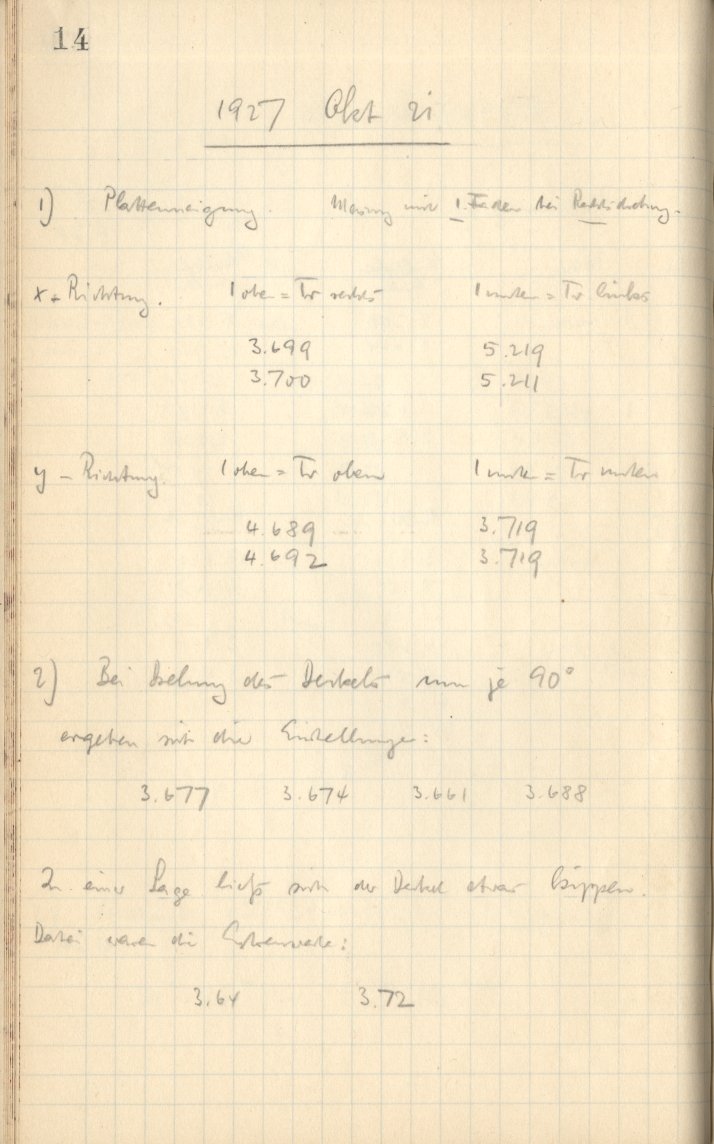 14
1927 Okt 21
1) Plattenneigung. Messung mit 1. Faden bei Rechtsdrehung.
x-Richtung. 1 oben = Tr rechts 1 unten = Tr links
3.699 5.219
3.700 5.211
y-Richtung. 1 oben = Tr oben 1 unten = Tr unten
4.689 3.719
4.692 3.719
2) Bei Drehung des Deckels um je 90°
ergeben sich die Einstellungen:
3.677 3.674 3.661 3.688
In einer Lage ließ sich der Deckel etwas kippen.
Dabei waren die Extremwerte:
3.64 3.72